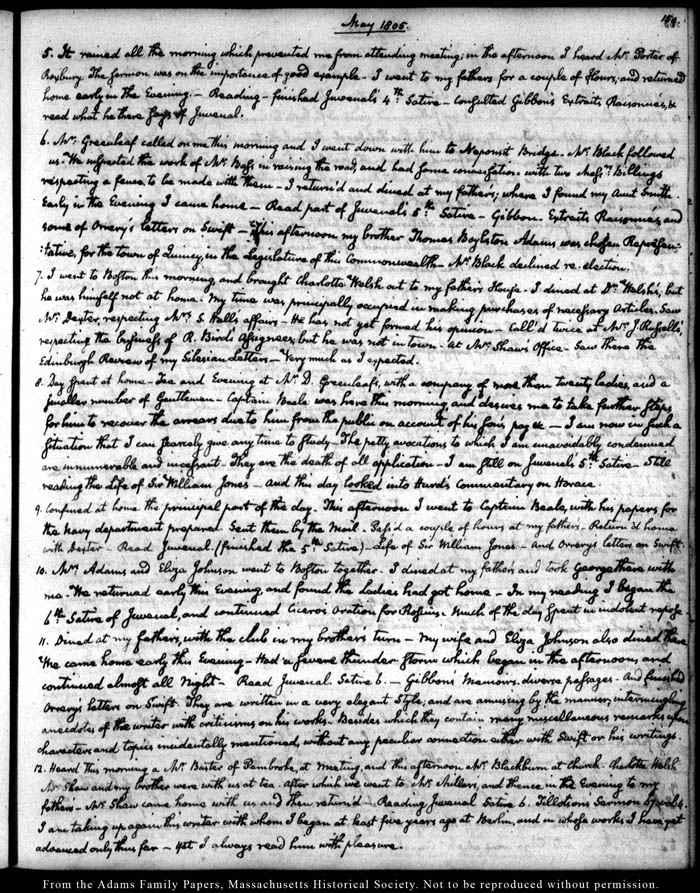 May 1805.
159.
5. It rained all the morning, which prevented me from attending meeting; in the afternoon I heard Mr. Porter of
Roxbury. The sermon was on the importance of good example — I went to my fathers for a couple of hours, and returned
home early in the Evening. — Reading — finished Juvenal's 4th Satire — Consulted Gibbon's Extraits Raisonnés, &
read what he there says of Juvenal.
6. Mr. Greenleaf called on me this morning and I went down with him to Neponset Bridge. Mr. Black followed
us. We inspected the work of Mr. Bass in raising the road, and had some conversation with two Messrs. Billings
respecting a fence to be made with them — I return'd and dined at my father's; where I found my Aunt Smith.
Early in the Evening I came home — Read part of Juvenal's 5th Satire — Gibbon. Extraits Raisonnés, and
some of Orrery's letters on Swift — This afternoon my brother Thomas Boylston Adams was chosen Represen-
:tative, for the town of Quincy, in the Legislature of this Commonwealth — Mr. Black declined re-election.
7. I went to Boston this morning, and brought Charlotte Welsh out to my father's House. I dined at Dr. Welsh's; but
he was himself not at home. My time was principally occupied in making purchases of necessary Articles. Saw
Mr. Dexter, respecting Mrs. S. Hall's affairs — He has not yet formed his opinion — Call'd twice at Mr. J. Russell's,
respecting the business of R. Bird's Assignees; but he was not in town — At Mr. Shaw's Office — Saw there the
Edinburgh Review of my Silesian Letters — Very much as I expected.
8. Day spent at home — Tea and Evening at Mr. D. Greenleaf's, with a company of more than twenty ladies, and a
smaller number of Gentlemen — Captain Beale was here this morning and desires me to take further steps
for him to recover the arrears due to him from the public on account of his son's pay &c — I am now in such a
situation that I can scarcely give any time to Study — The petty avocations to which I am unavoidably condemned
are innumerable and incessant. They are the death of all application — I am still on Juvenal's 5th Satire — Still
reading the Life of Sir William Jones — and this day looked into Hurd's Commentary on Horace.
9. Confined at home the principal part of the day. This afternoon I went to Captain Beale, with his papers for
the Navy department prepared. Sent them by the Mail. Pass'd a couple of hours at my fathers. Return'd home
with Dexter — Read Juvenal. (finished the 5th Satire) — Life of Sir William Jones — And Orrery's letters on Swift.
10. Mrs. Adams and Eliza Johnson went to Boston together. I dined at my fathers and took George there with
me. We returned early this Evening, and found the Ladies had got home — In my reading I began the
6th Satire of Juvenal, and continued Cicero's Oration for Roscius. Much of the day spent in indolent repose
11. Dined at my fathers, with the club in my brother's turn — My wife and Eliza Johnson also dined there
We came home early this Evening — Had a severe thunder storm which began in the afternoon, and
continued almost all Night — Read Juvenal. Satire 6. — Gibbon's Memoirs. diverse passages. And finished
Orrery's letters on Swift. They are written in a very elegant Style; and are amusing by the manner, intermingling
anecdotes of the writer with criticisms on his works. Besides which they contain many miscellaneous remarks upon
characters and topics incidentally mentioned, without any peculiar connection either with Swift or his writings.
12. Heard this morning a Mr. Baxter of Pembroke, at Meeting, and this afternoon Mr. Blackburn at Church. Charlotte Welsh
Mr. Shaw and my brother were with us at tea. after which we went to Mr. Miller's, and thence in the Evening to my
fathers — Mr. Shaw came home with us and then return'd — Reading Juvenal Satire 6. Tillotson's Sermon 57. vol. 4.
I am taking up again this writer with whom I began at least five years ago at Berlin, and in whose works I have yet
advanced only thus far — Yet I always read him with pleasure.
From the Adams Family Papers, Massachusetts Historical Society. Not to be reproduced without permission.